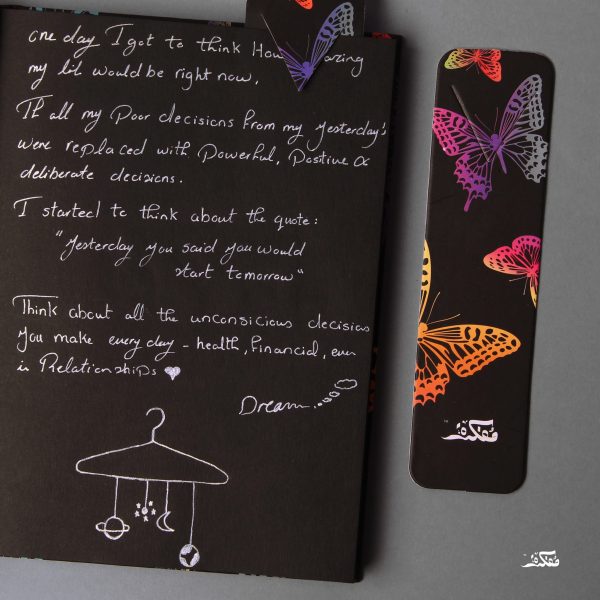 one day I got to think How
my life would be right now,
If all my Poor decisions from my yesterday's
were replaced with Powerful, Positive &
deliberate decisions.
I started to think about the quote:
"Yesterday you said you would
start tomorrow"
Think about all the unconsicious decisions
You make every day - health, financial, even
in Relationships
Dream...
مفكرة
مفكرة